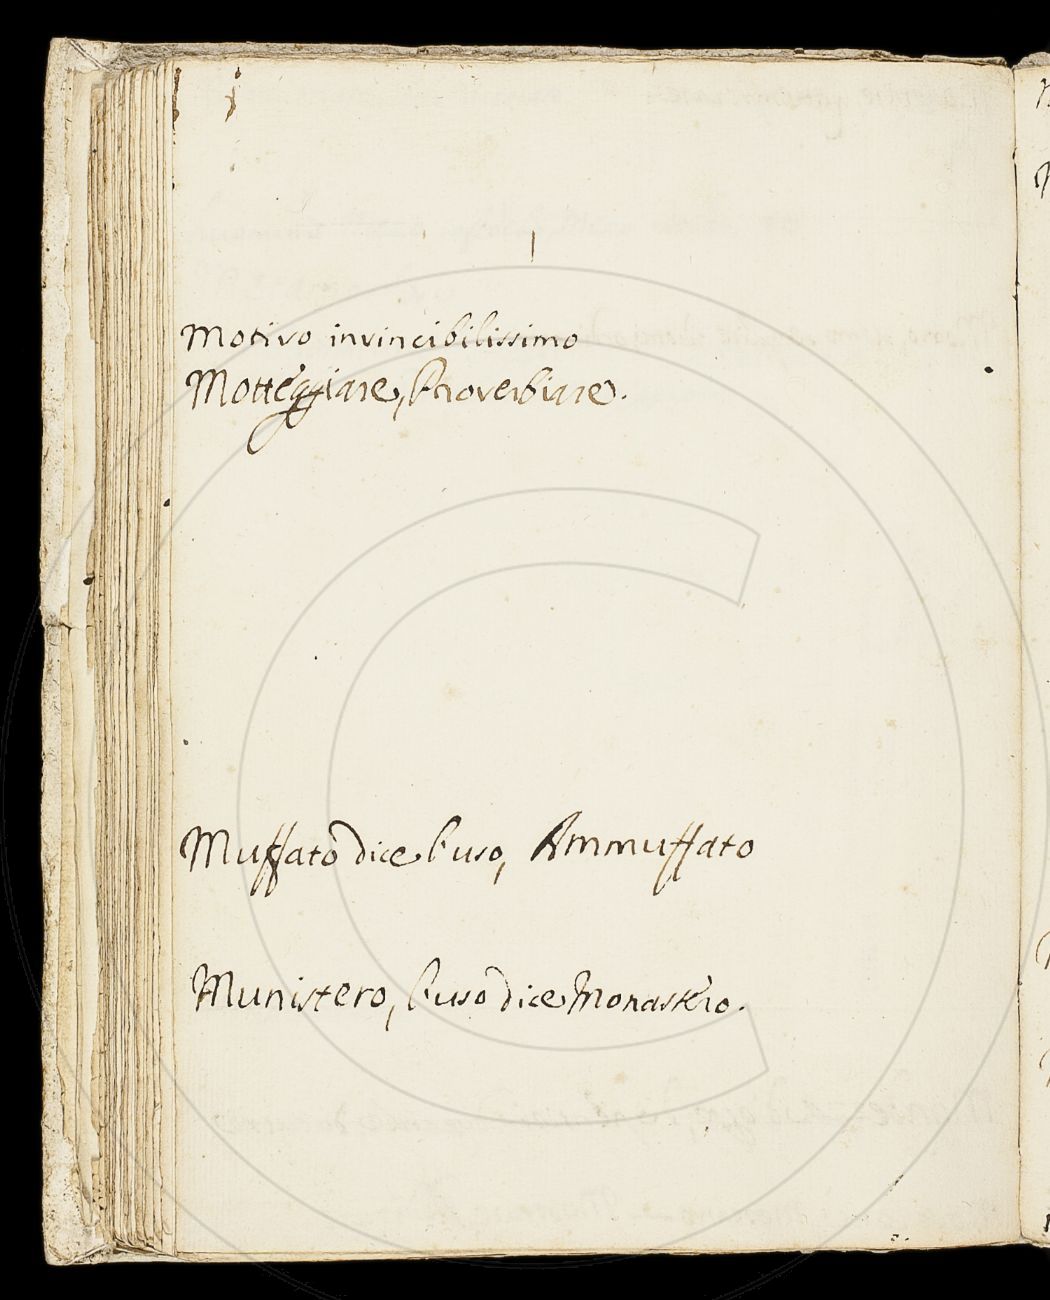 Motivo invincibilissimo
Motteggiare, Proverbiare.
Muffato dice l'uso, Ammuffato
Munistero, l'uso dice Monastero.